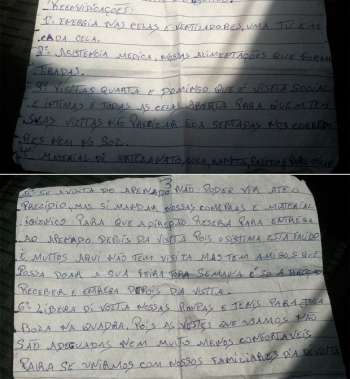 REEINVIDICAÇÕES
1º ENERGIA NAS CELAS E VENTILADORES, UMA TV E AS
CADA CELA.
2º ASISTENCIA MEDICA, NOSSAS ALIMENTAÇÕES QUE FORAM
TIRADAS.
VISITAS QUARTA E DOMINGO QUE É VISITA SOCIAL
E INTIMAS E TODAS AS CELAS ABERTA PARA QUEM TEM
SUAS VISITAS NÃO FICAR SENTADAS NOS CORREDO
RES NEM NO SOL.
MATERIAL DE
5º SE A VISITA DO APENADO NÃO PODER VIR ATÉ O
PRECIDIO, MAS SI MANDAR NOSSAS COMPRAS E MATERIAL
IGIENICO PARA QUE A DIREÇÃO RESEBA PARA ENTREGA
AO APENADO DEPOIS DA VISITA POIS O SISTEMA ESTA FALIDO
E MUITOS AQUI NÃO TEM VISITA MAS TEM AMIGOS QUE
POSSA DOAR A SUA FEIRA TODA SEMANA E SÓ A DIREÇÃO
RECEBER E ENTREGA DEPOIS DA VISITA.
6º LIBERA DI VOLTA NOSSAS ROUPAS E TENIS PARA JOGA
BOLA NA QUADRA, POIS AS VESTES QUE USAMOS NÃO
SÃO ADEQUADAS NEM MUITO MENOS CONFORTAVEIS
PARA SE UNIRMOS COM NOSSOS FAMILIARES DIA DE VISITA